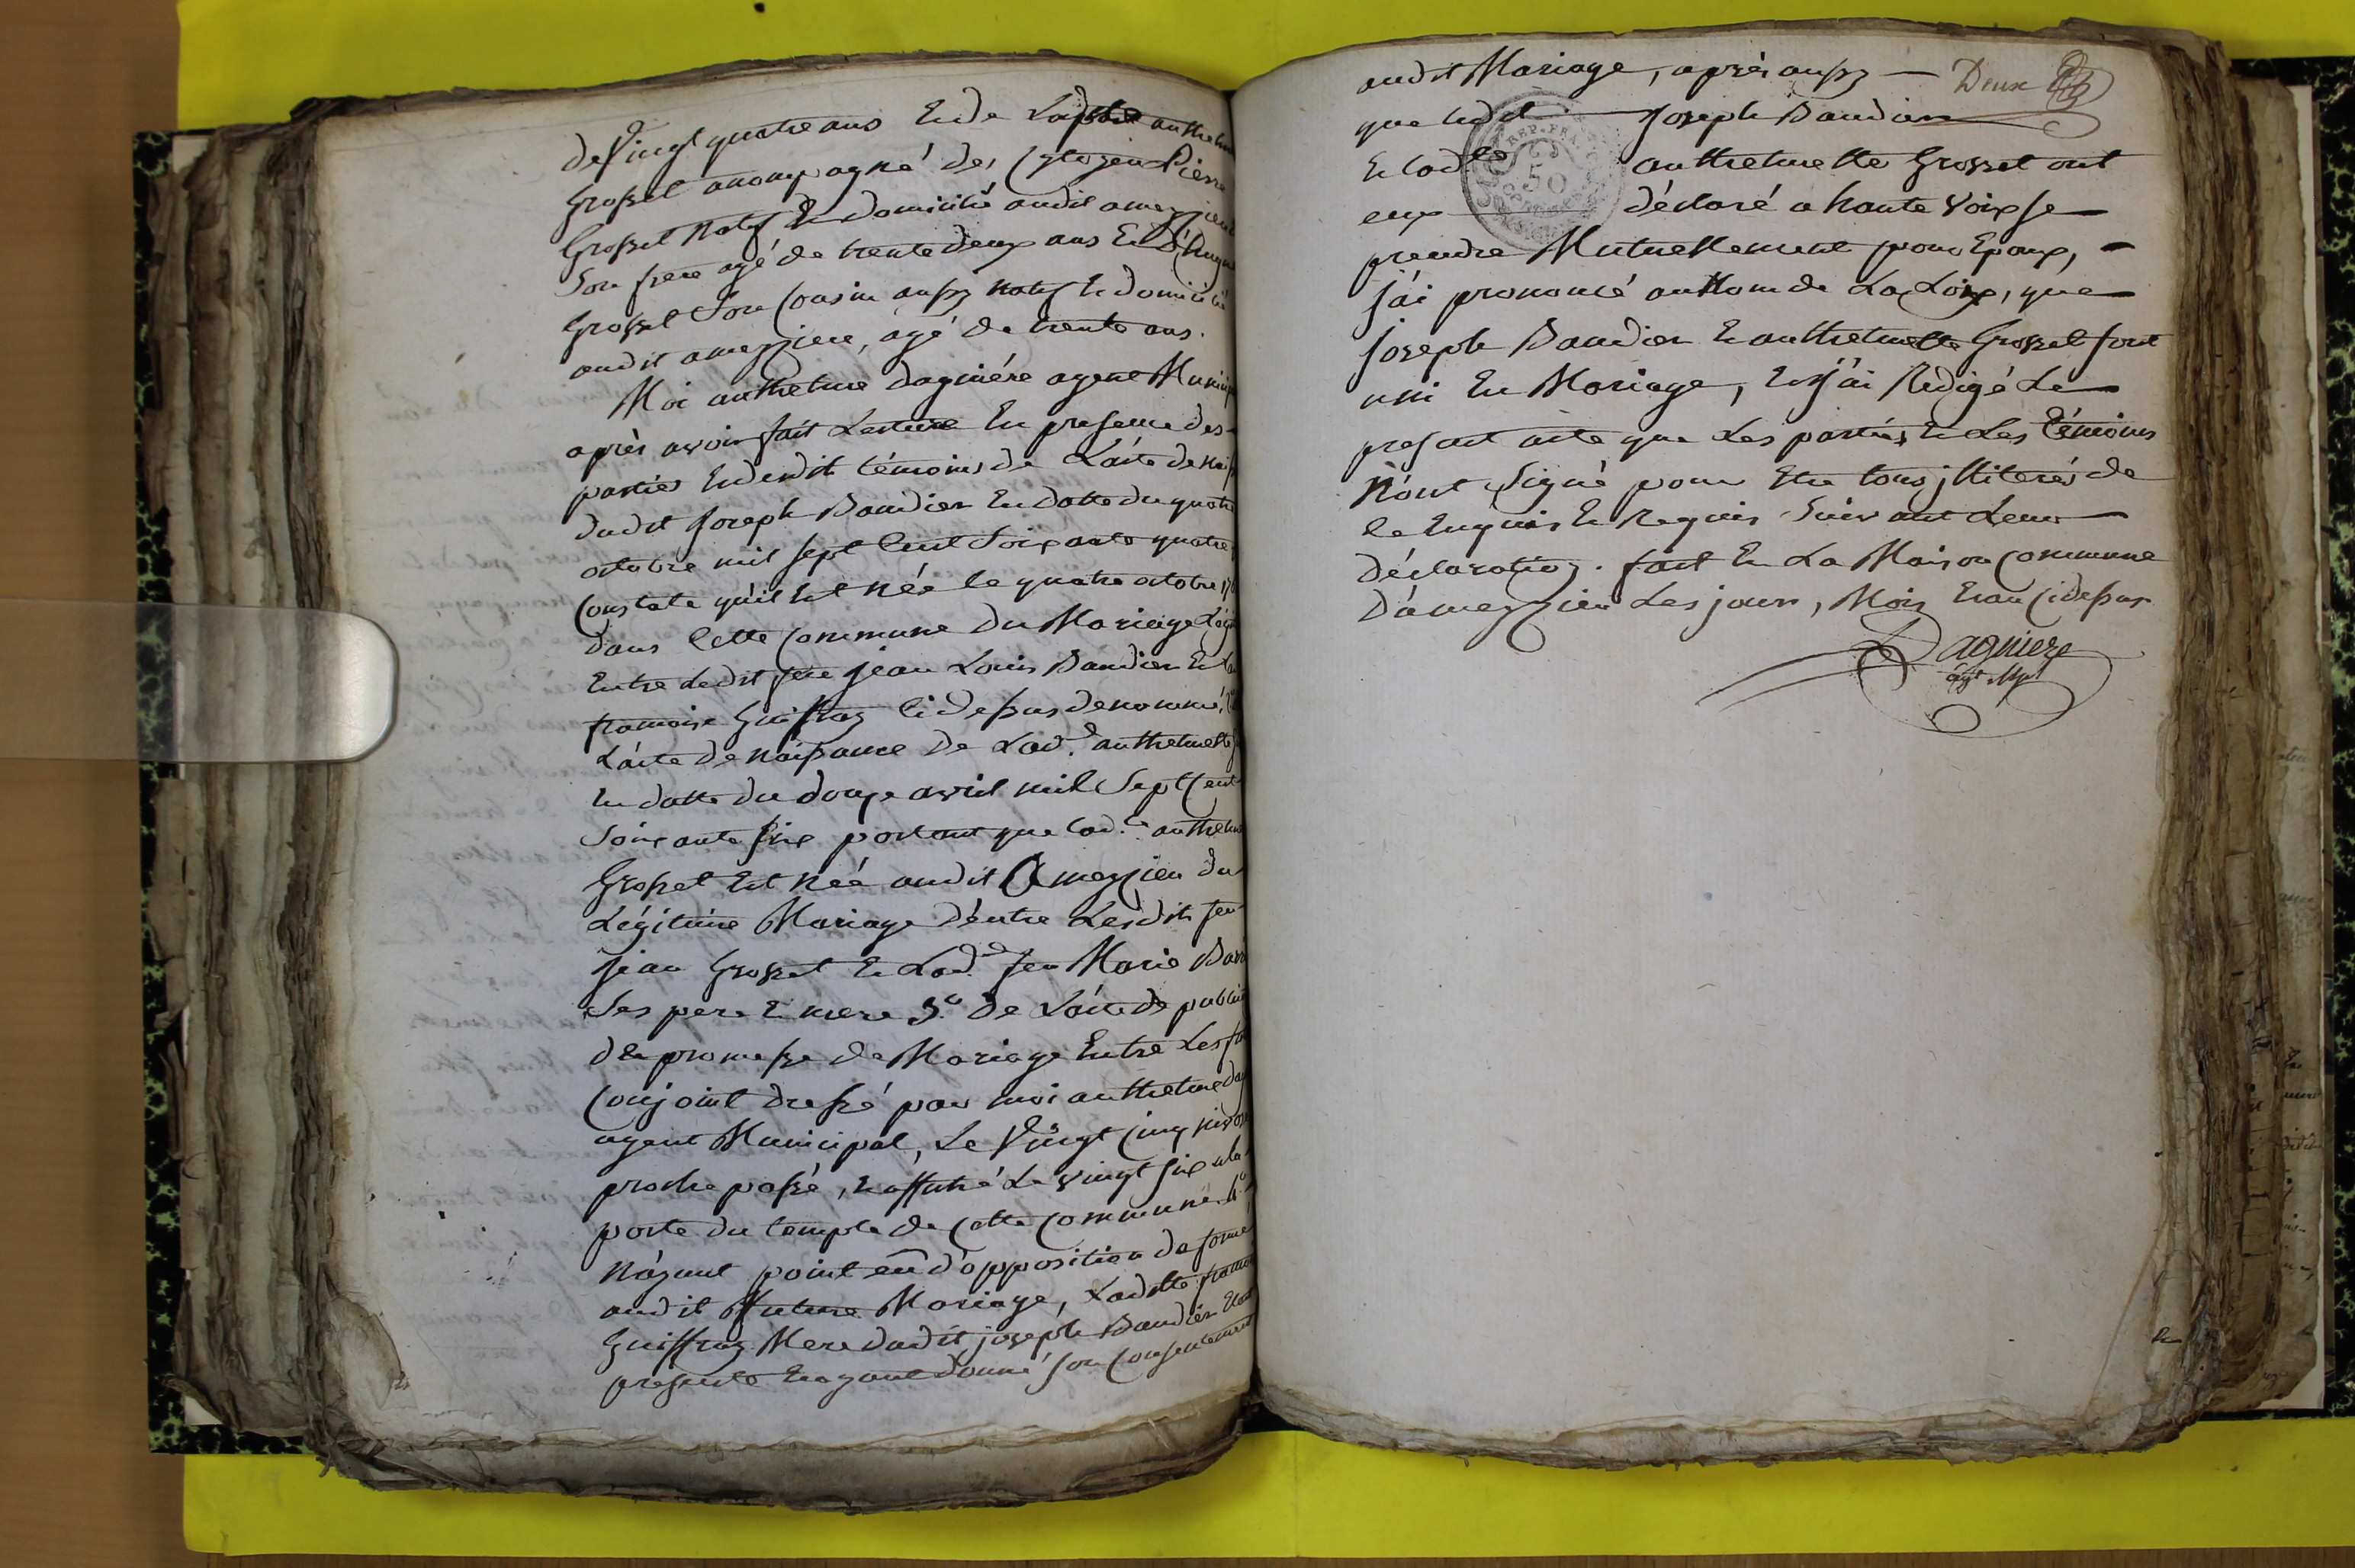 de Vingt quatre ans Et de Ladite anthelm
Grosset accompagné des Cytoyens Pierre
Grosset Natif Et domicilié audit amezzieu
Son frere agé de trente deux ans Et D'hugue
Grosset Son Cousin aussy Natif Et domicilié
audit amezzieu, agé de trente ans.
Moi anthelme Dagniére agent Municip
après avoir fait Lecture En presence des
parties Et desdits témoins de L'acte de Naiss
dudit Joseph Baudier En datte du quatre
octobre mil sept Cent Soixante quatre
Constate qu'il Est Née le quatre octobre 17
dans Cette Commune du Mariage Légi
Entre Ledit feu jean Louis Baudier Et La
francoise Guiffray Cidessus denommé, 2°
L'acte de Naissance de Lad.e anthelmette
En datte du douze avril mil Sept Cent
Soixante six portant que lad.e anthelm
Grosset Est Née audit Amezzieu du
Légitime Mariage d'entre Lesdits feu
jean Grosset Et Lad.e feu Marie Bar
Ses pere Et mere 3.° de L'acte de publica
de promesse de Mariage Entre Les fu
Conjoint dressé par moi anthelme Dag
agent Municipal, Le Vingt Cinq nivos
proche passé, Et affiché Le vingt six a la
porte du temple de Cette Commune 4°
N'ayant point eû d'opposition de formé
audit future Mariage, Ladite francoi
Guiffray Mere dudit joseph Baudier Etant
presente Et ayant donné son Consentement
audit Mariage, après aussy — Deux
que ledit Joseph Baudier
Et lad.te anthelmette Grosset ont
eux déclaré a haute Voix se
prendre Mutuellement pour Epoux, -
J'ai prononcé au Nom de La Loix, que
Joseph Baudier Et anthelmette Grosset sont
uni En Mariage, Et J'ai Rédigé Le
present acte que Les parties Et Les témoins
N'ont Signé pour Etre tous jlliterés de
ce Enquis Et Requis Suivant Leur
Déclaration. fait En La Maison Commune
D'amezzieu Les jour, Mois Et an Cidessus
Dagniere
agt Mpal
REP. FRA.
50